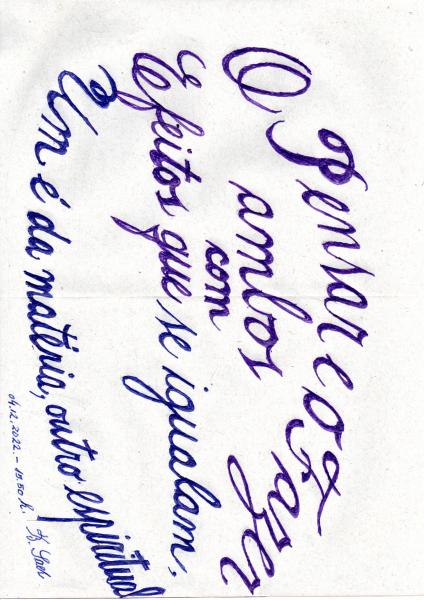 O Pensar e o Fazer
ambos
com
Efeitos que se igualam.
Um é da matéria, outro espiritual
04.12.2022 - 15.50 h.